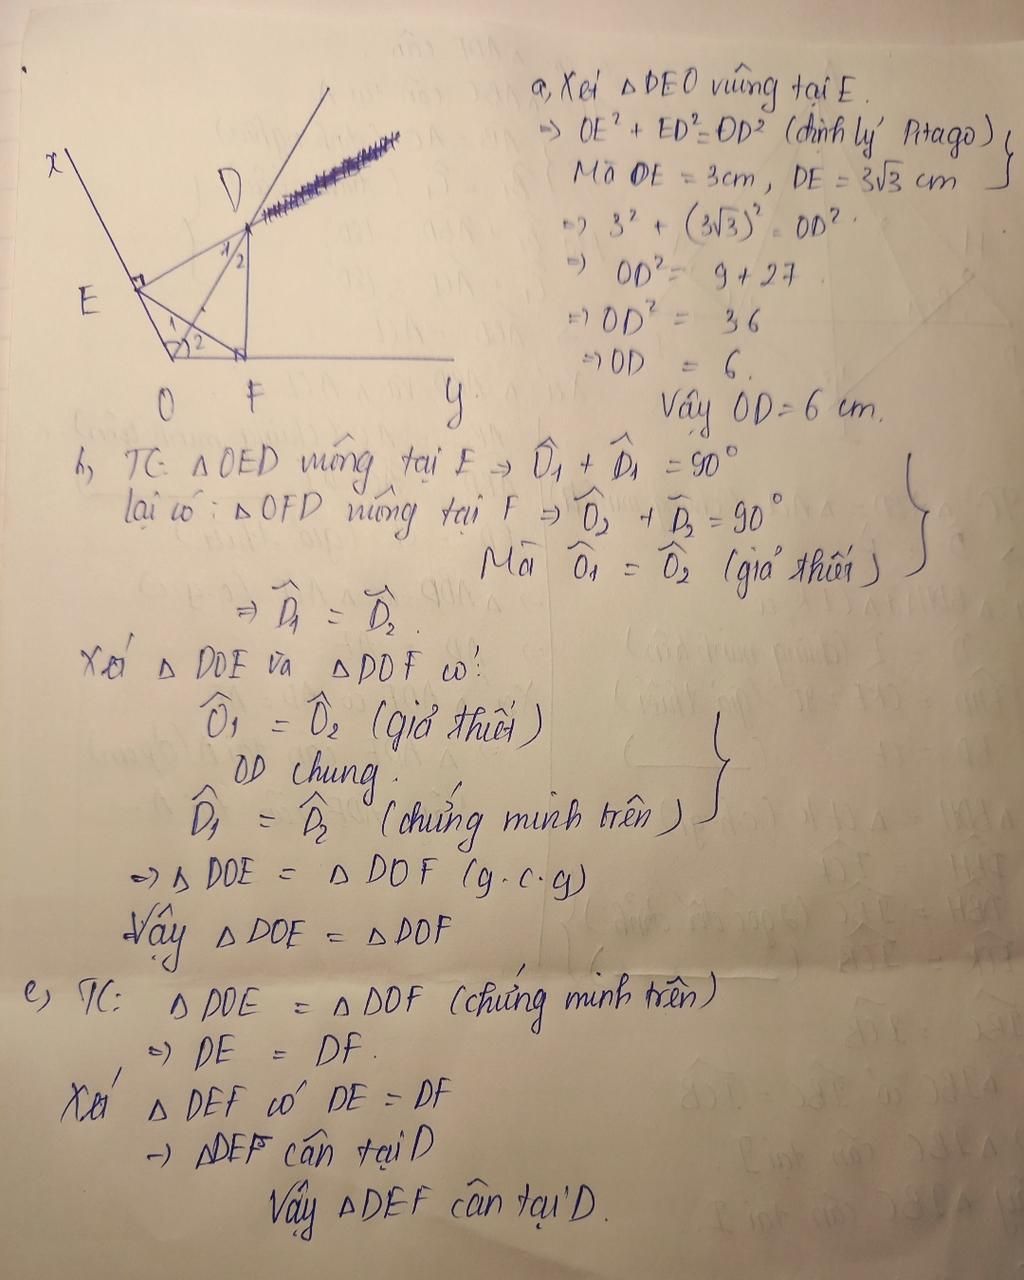 x
D
1
2
E
1
2
O
F
y
a, Xét △DEO vuông tại E.
=> OE² + ED² = OD² (định lý Pitago)
Mà OE = 3cm, DE = 3√3 cm
=> 3² + (3√3)² = OD².
=> OD² = 9 + 27
=> OD² = 36
=> OD = 6.
Vậy OD = 6 cm.
b, TC: △OED vuông tại E => Ô₁ + D̂₁ = 90°
lại có: △OFD vuông tại F => Ô₂ + D̂₂ = 90°
Mà Ô₁ = Ô₂ (giả thiết)
=> D̂₁ = D̂₂.
Xét △DOE và △DOF có:
Ô₁ = Ô₂ (giả thiết)
OD chung.
D̂₁ = D̂₂ (chứng minh trên)
=> △DOE = △DOF (g.c.g)
Vậy △DOE = △DOF
c, TC: △DOE = △DOF (chứng minh trên)
=> DE = DF.
Xét △DEF có DE = DF
-> △DEF cân tại D
Vậy △DEF cân tại D.